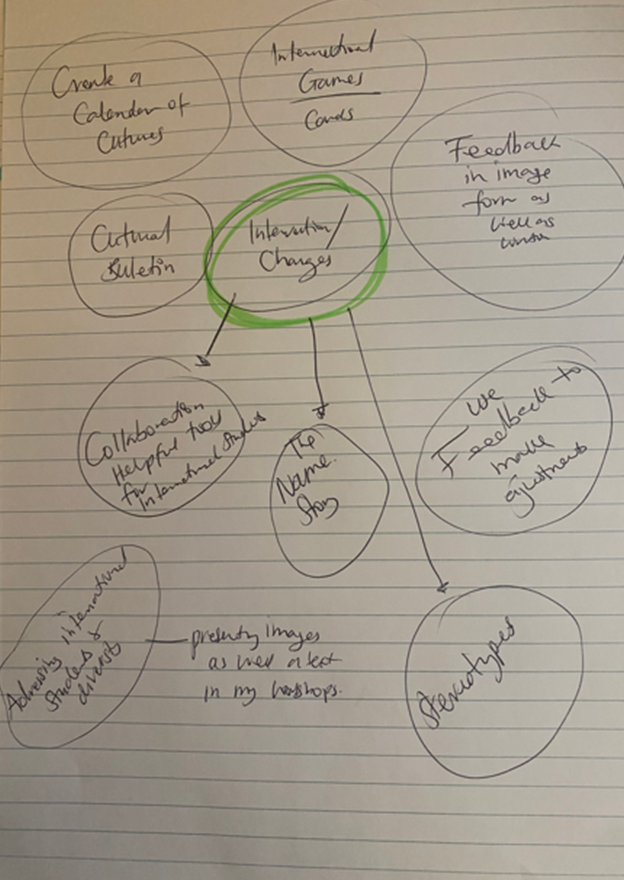 Create a
Calendar of
Cultures
International
Games
Cards
Feedback
in image
form as
well as
Cultural
Buletin
Intervention/
Changes
Collaboration
Helpful tool
for
International Students
The
Name.
Story
Use
Feedback to
make
ajustments
Adressing international
students &
diversity
presenting images
as well as text
in my workshops.
Stereotypes